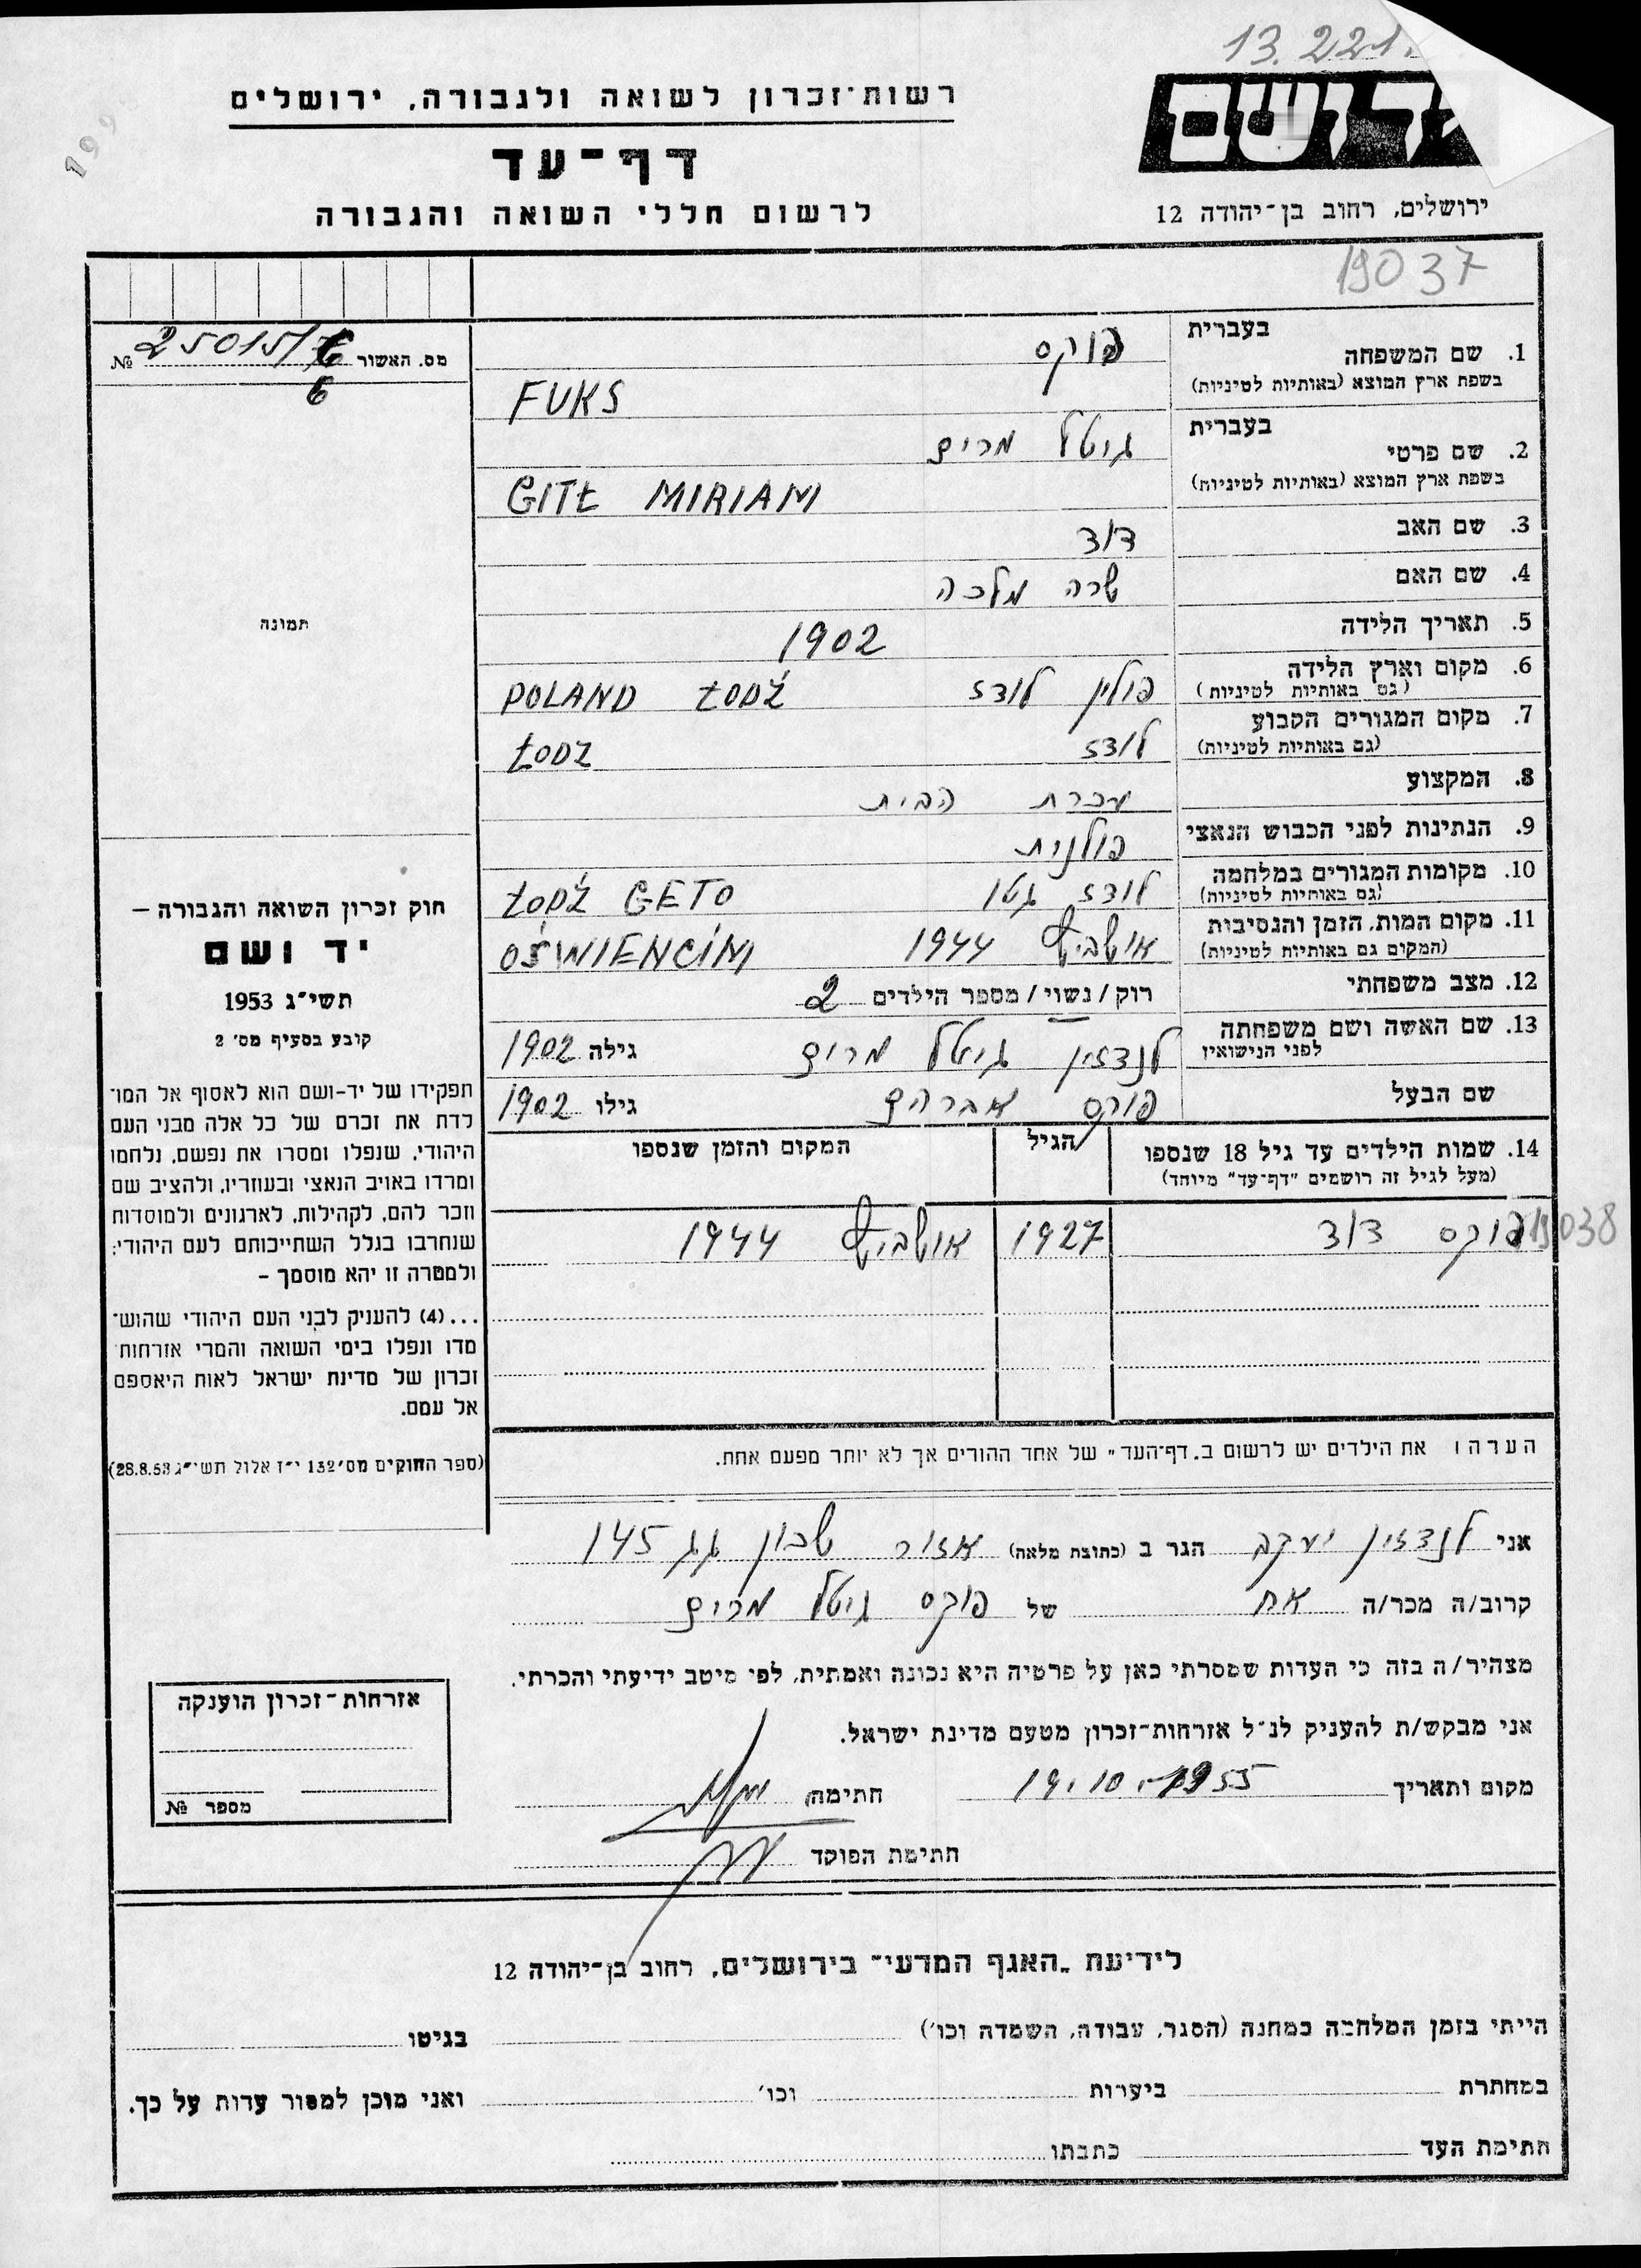 13.221
רשות־זכרון לשואה ולגבורה, ירושלים
דף־עד
לרשום חללי השואה והגבורה
ירושלים, רחוב בן־יהודה 12
19037
מס. האשור 25015/ №
6
בעברית
1. שם המשפחה פוקס
בשפת ארץ המוצא (באותיות לטיניות) FUKS
בעברית
2. שם פרטי גיטל מרים
בשפת ארץ המוצא (באותיות לטיניות) GITŁ MIRIAM
3. שם האב דוד
4. שם האם שרה מלכה
5. תאריך הלידה 1902
6. מקום וארץ הלידה פולין לודז POLAND ŁODŹ
(גם באותיות לטיניות)
7. מקום המגורים הקבוע לודז ŁODZ
(גם באותיות לטיניות)
8. המקצוע עכרת הבית
9. הנתינות לפני הכבוש הנאצי פולנית
10. מקומות המגורים במלחמה לודז גטו ŁODŹ GETO
(גם באותיות לטיניות)
11. מקום המות, הזמן והנסיבות אושביץ 1944 OŚWIENCIM
(המקום גם באותיות לטיניות)
12. מצב משפחתי רוק / נשוי / מספר הילדים 2
13. שם האשה ושם משפחתה לנדזין גיטל מרים גילה 1902
לפני הנישואין
שם הבעל פוקס אברהם גילו 1902
14. שמות הילדים עד גיל 18 שנספו הגיל המקום והזמן שנספו
(מעל לגיל זה רושמים "דף־עד" מיוחד)
פוקס דוד 1927 אושביץ 1944
19038
הערה: את הילדים יש לרשום ב„דף־העד" של אחד ההורים אך לא יותר מפעם אחת.
תמונה
חוק זכרון השואה והגבורה —
יד ושם
תשי"ג 1953
קובע בסעיף מס' 2
תפקידו של יד-ושם הוא לאסוף אל המו־
לדת את זכרם של כל אלה מבני העם
היהודי, שנפלו ומסרו את נפשם, נלחמו
ומרדו באויב הנאצי ובעוזריו, ולהציב שם
וזכר להם, לקהילות, לארגונים ולמוסדות
שנחרבו בגלל השתייכותם לעם היהודי;
ולמטרה זו יהא מוסמך –
...(4) להעניק לבני העם היהודי שהוש־
מדו ונפלו בימי השואה והמרי אזרחות
זכרון של מדינת ישראל לאות היאספם
אל עמם.
(ספר החוקים מס' 132 י"ז אלול תשי"ג 28.8.53)
אני לנדזין יעקב הגר ב (כתובת מלאה) אזור שכון גג 145
קרוב/ה מכר/ה אח של פוקס גיטל מרים
מצהיר/ה בזה כי העדות שמסרתי כאן על פרטיה היא נכונה ואמתית, לפי מיטב ידיעתי והכרתי.
אני מבקש/ת להעניק לנ"ל אזרחות־זכרון מטעם מדינת ישראל.
מקום ותאריך 19.10.1955 חתימה
חתימת הפוקד
אזרחות־זכרון הוענקה
מספר №
לידיעת „האגף המדעי" בירושלים, רחוב בן־יהודה 12
הייתי בזמן המלחמה במחנה (הסגר, עבודה, השמדה וכו') בגיטו
במחתרת ביערות וכו' ואני מוכן למסור עדות על כך.
חתימת העד כתבתו